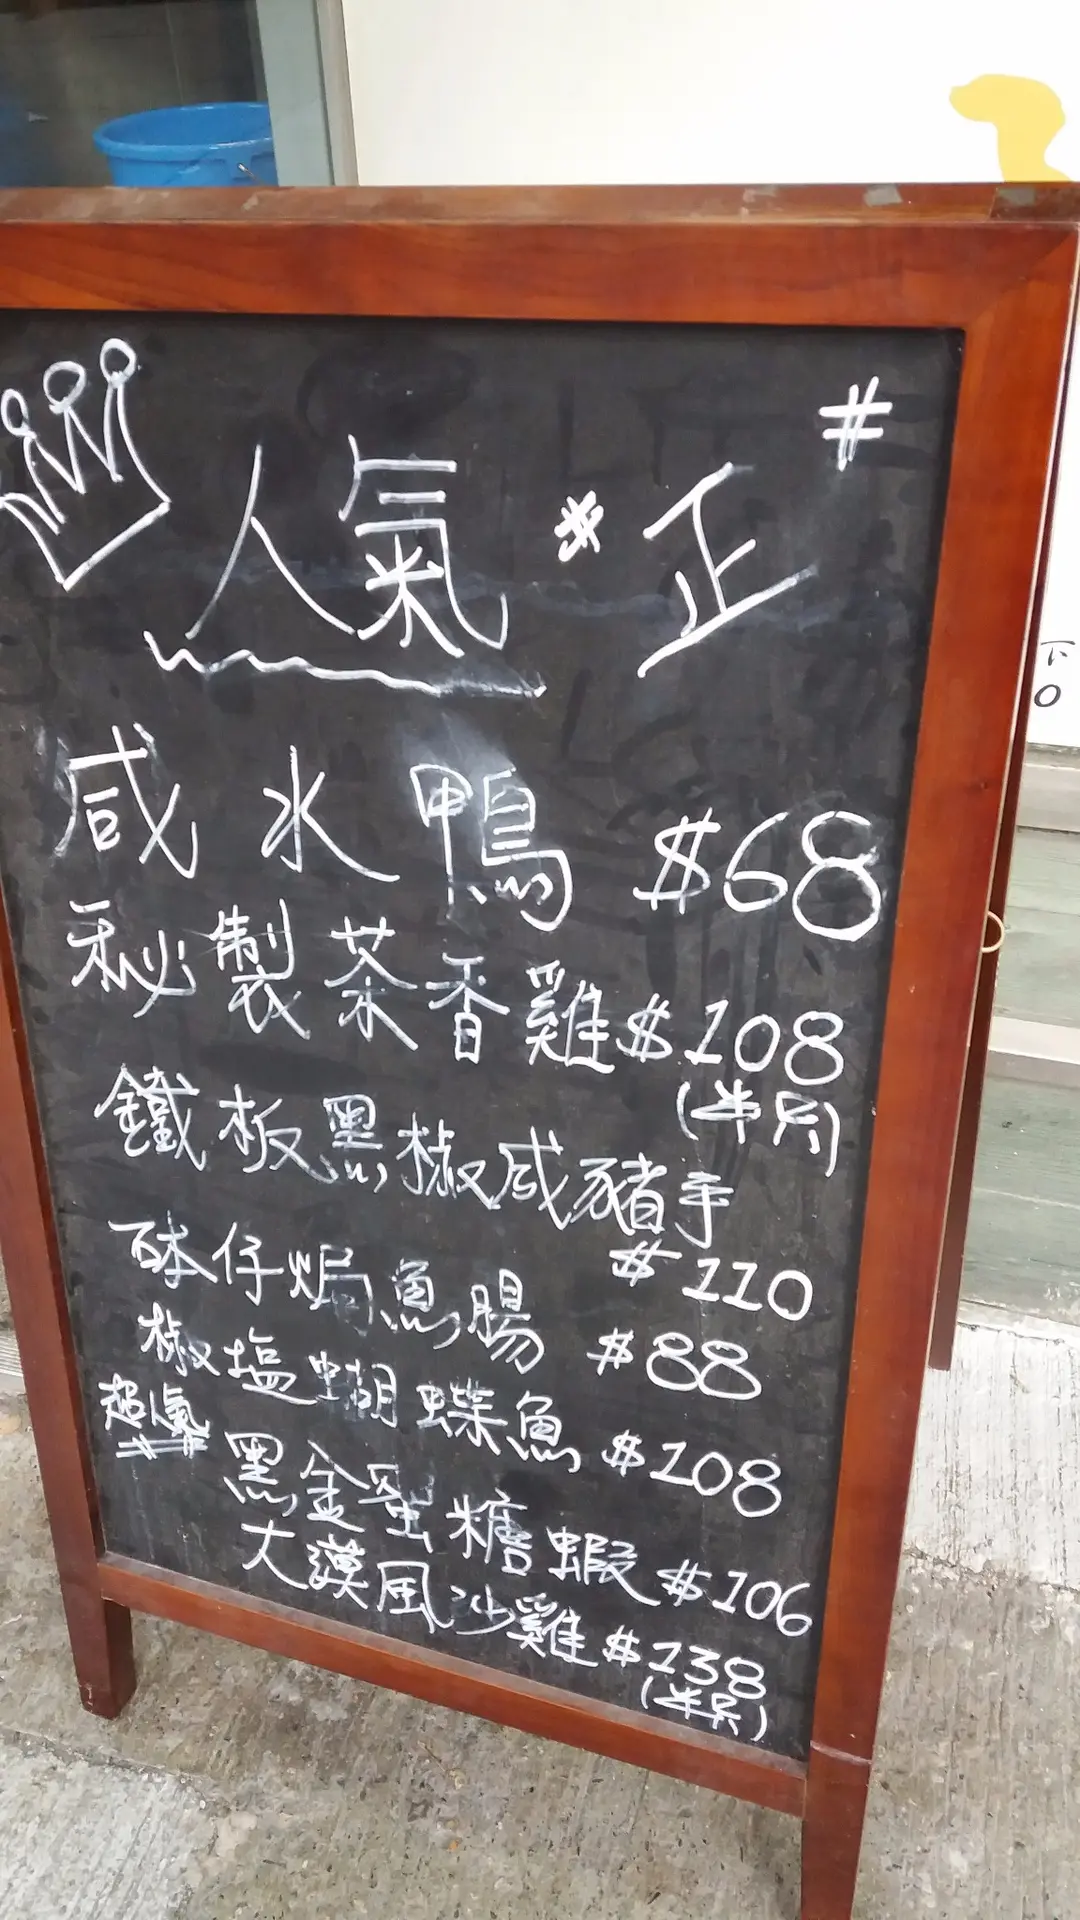 人氣 正
咸水鴨 $68
秘製茶香雞 $108
(半只)
鐵板黑椒咸豬手
$110
砵仔焗魚腸 $88
椒塩蝴蝶魚 $108
超人氣 黑金蜜糖蝦 $106
大漠風沙雞 $138
(半只)
下